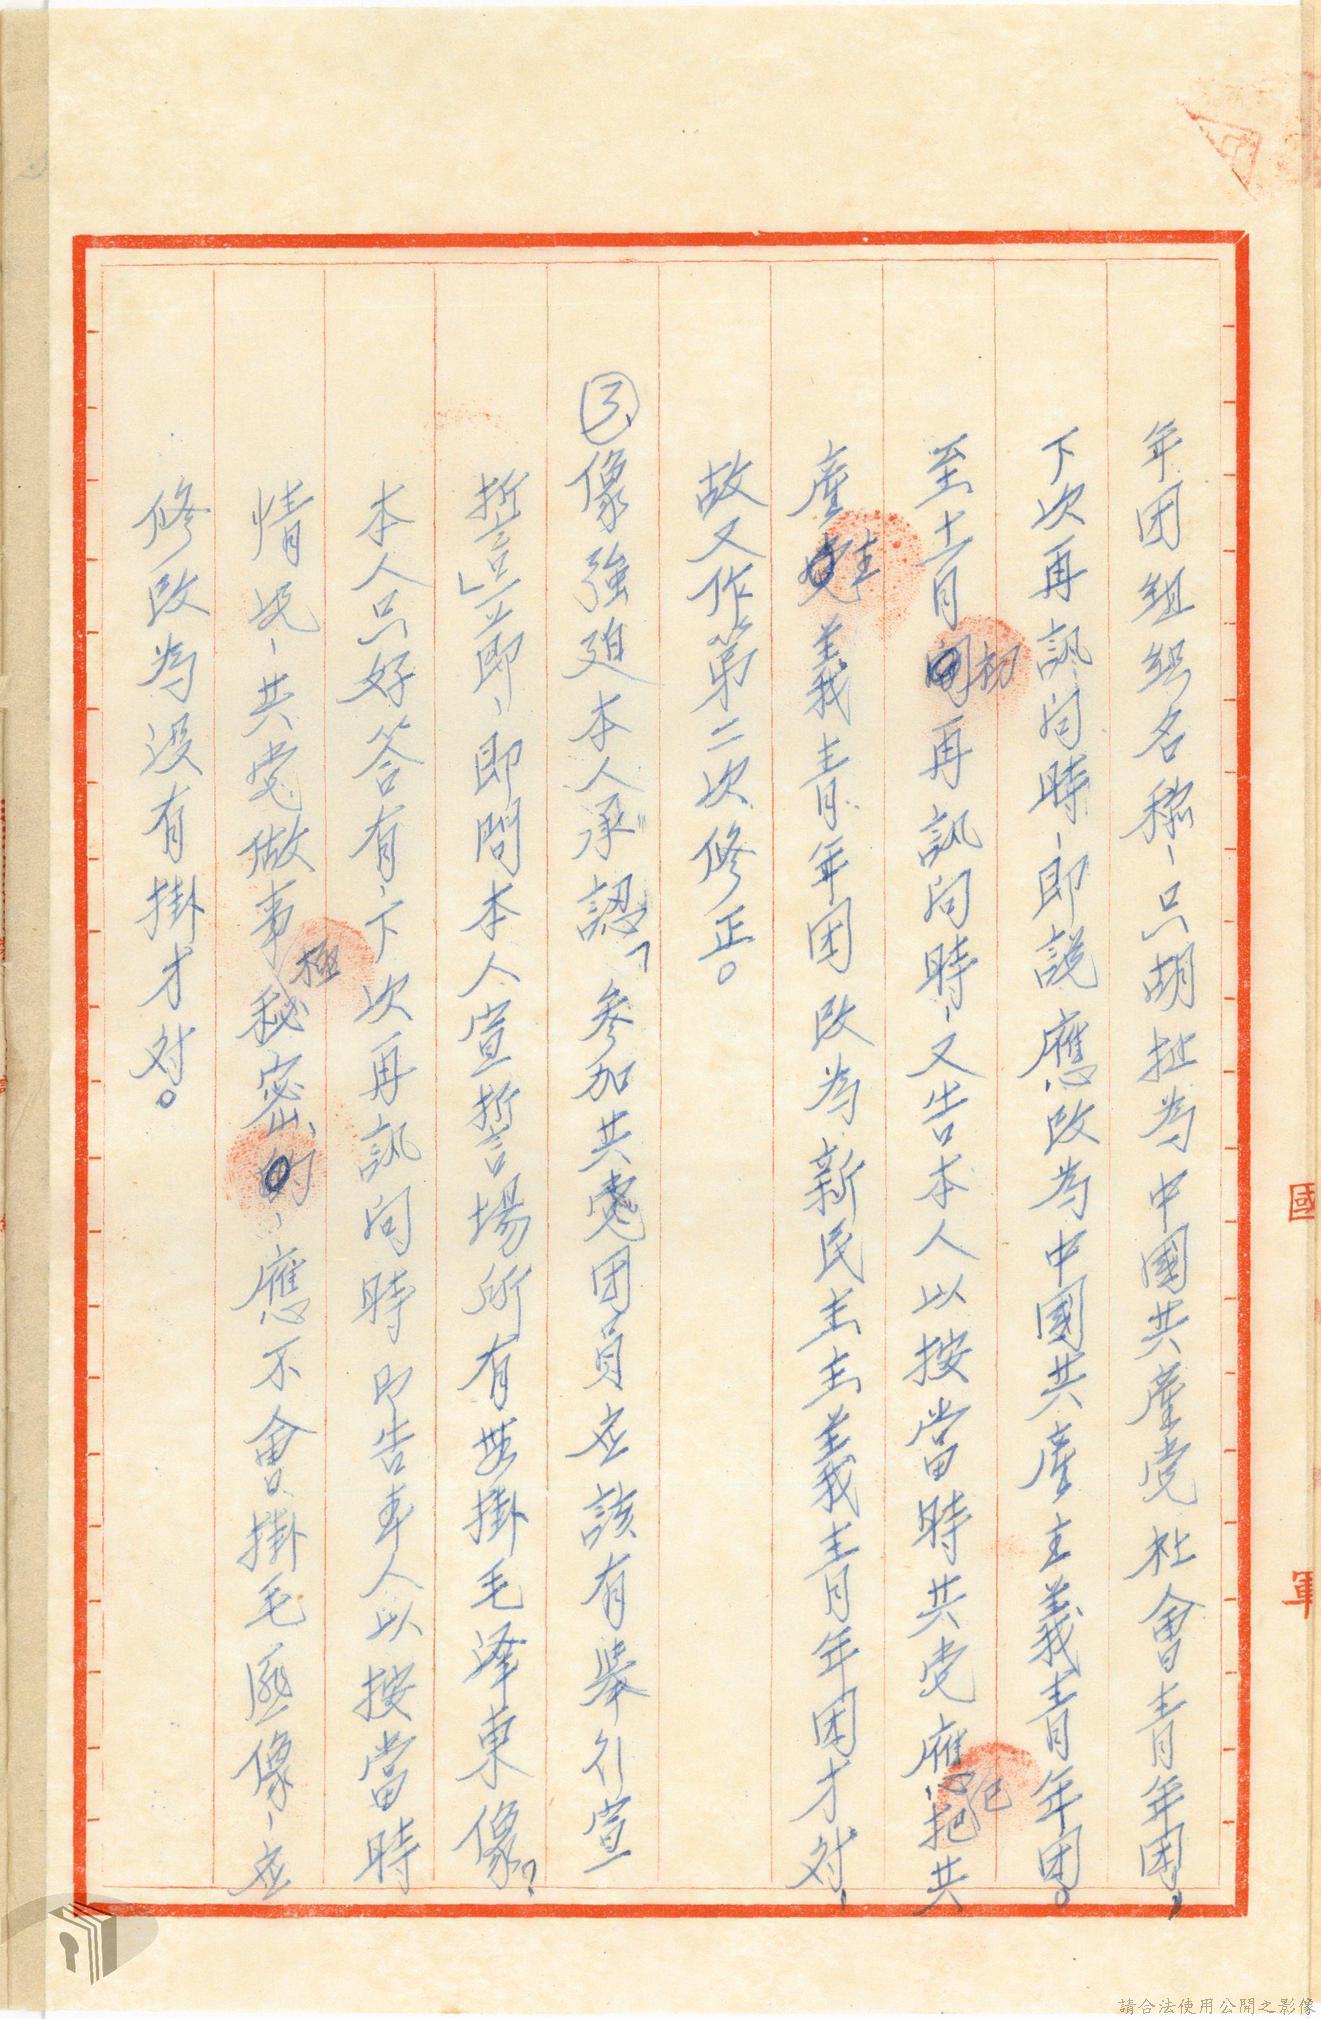 年团組織名稱、只胡扯為中國共產党社會青年团，
下次再訊问時、即說應改為中國共產主義青年团。
至十一月初再訊问時、又告本人以按當時共党應已把共
產主義青年团改為新民主主義青年团才对、
故又作第二次修正。
③像強廹本人承認「参加共党团員应該有舉行宣
誓」立即、即問本人宣誓場所有無掛毛澤東像？
本人只好答有、下次再訊问時即告本人以按當時
情況、共党做事極秘密、應不會掛毛匪像、应
修改為沒有掛才对。
國
軍
請合法使用公開之影像